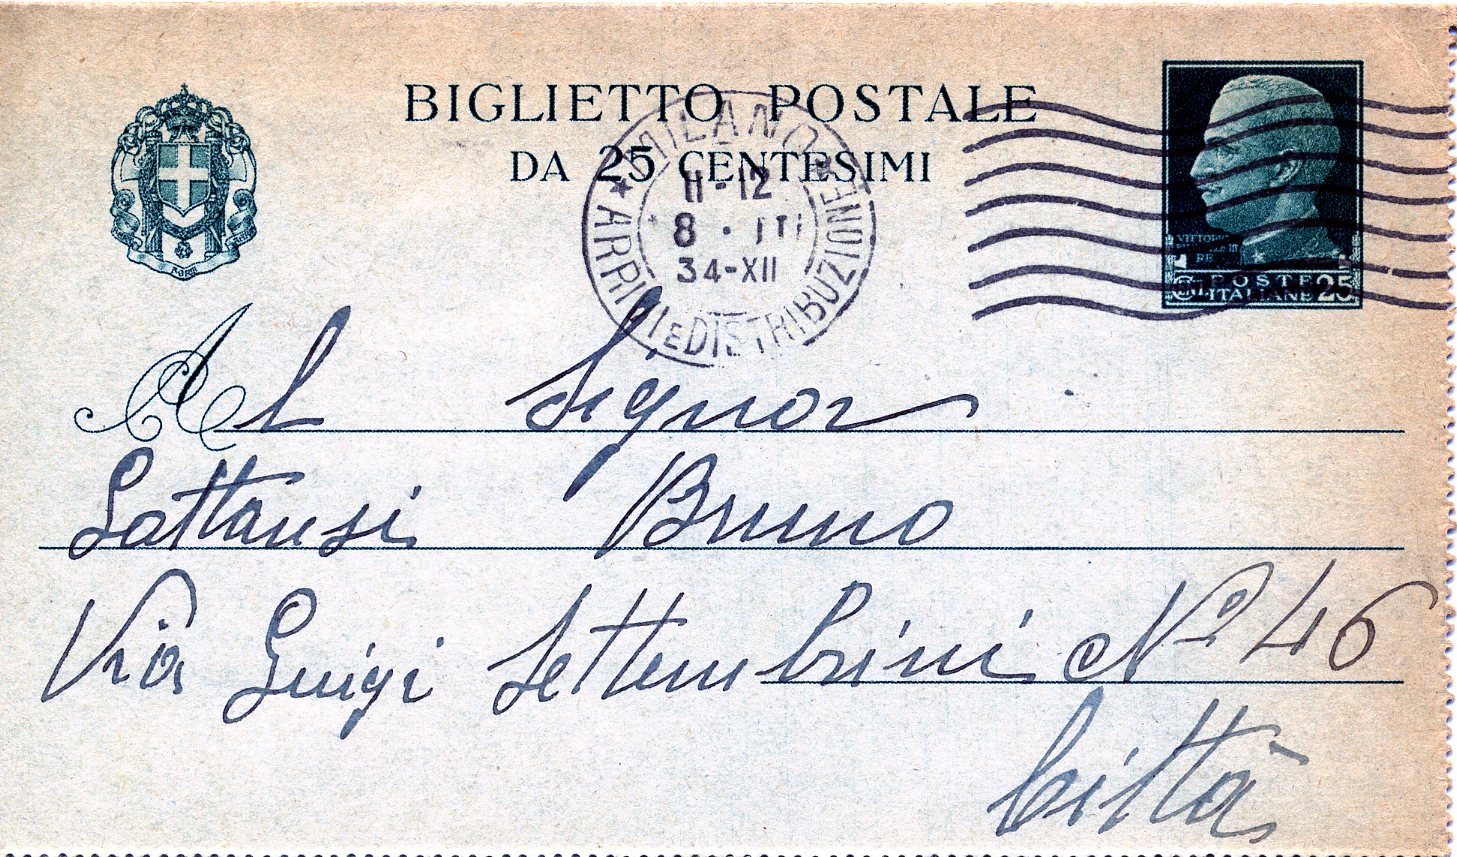 BIGLIETTO POSTALE
DA 25 CENTESIMI
MILANO
ARRIVI E DISTRIBUZIONE
11-12
8 · III
34-XII
POSTE
ITALIANE 25
Al Signor
Lattansi Bruno
Via Luigi Settembrini Nº 46
Città